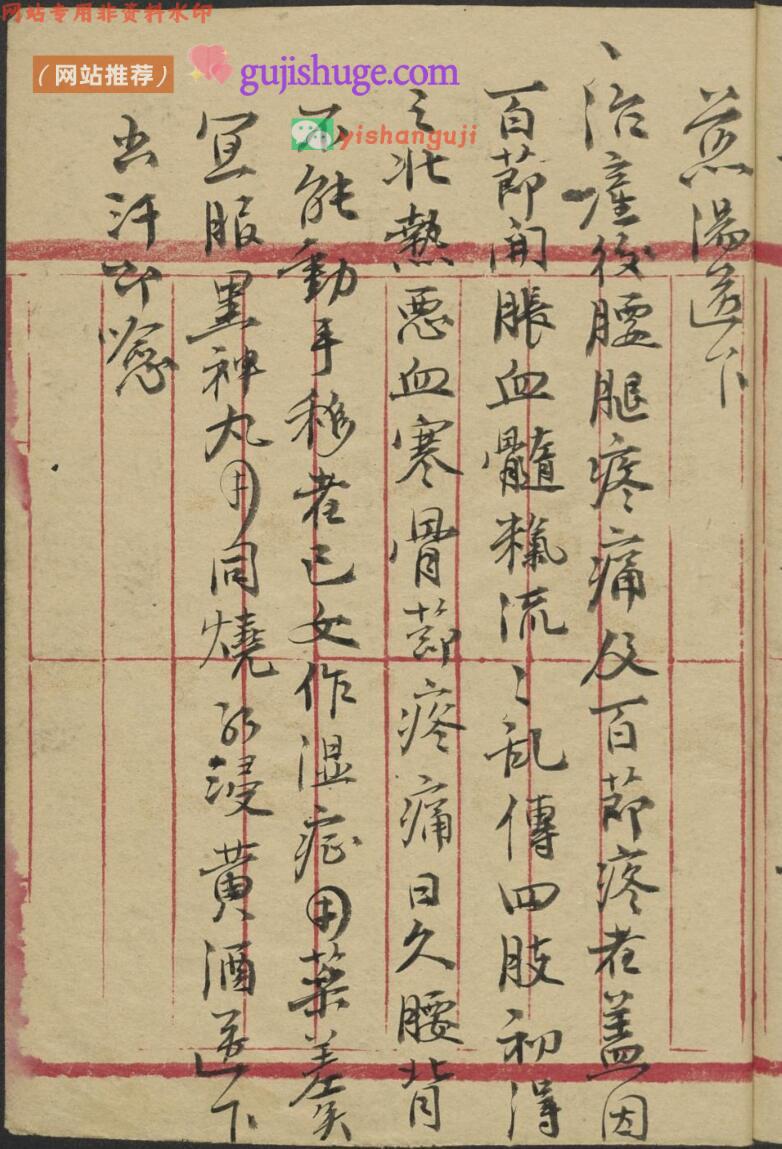 网站专用非资料水印
（网站推荐）
gujishuge.com
yishanguji
煎湯送下
治産後腰腿疼痛及百節疼者盖因
百節開脹血髓氣流〻乱傳四肢初得
之壮熱悪血寒骨節疼痛日久腰背
不能動手移者已女作湿症用藥差矣
宜服黒神丸用同燒 浸黄酒送下
出汗即愈